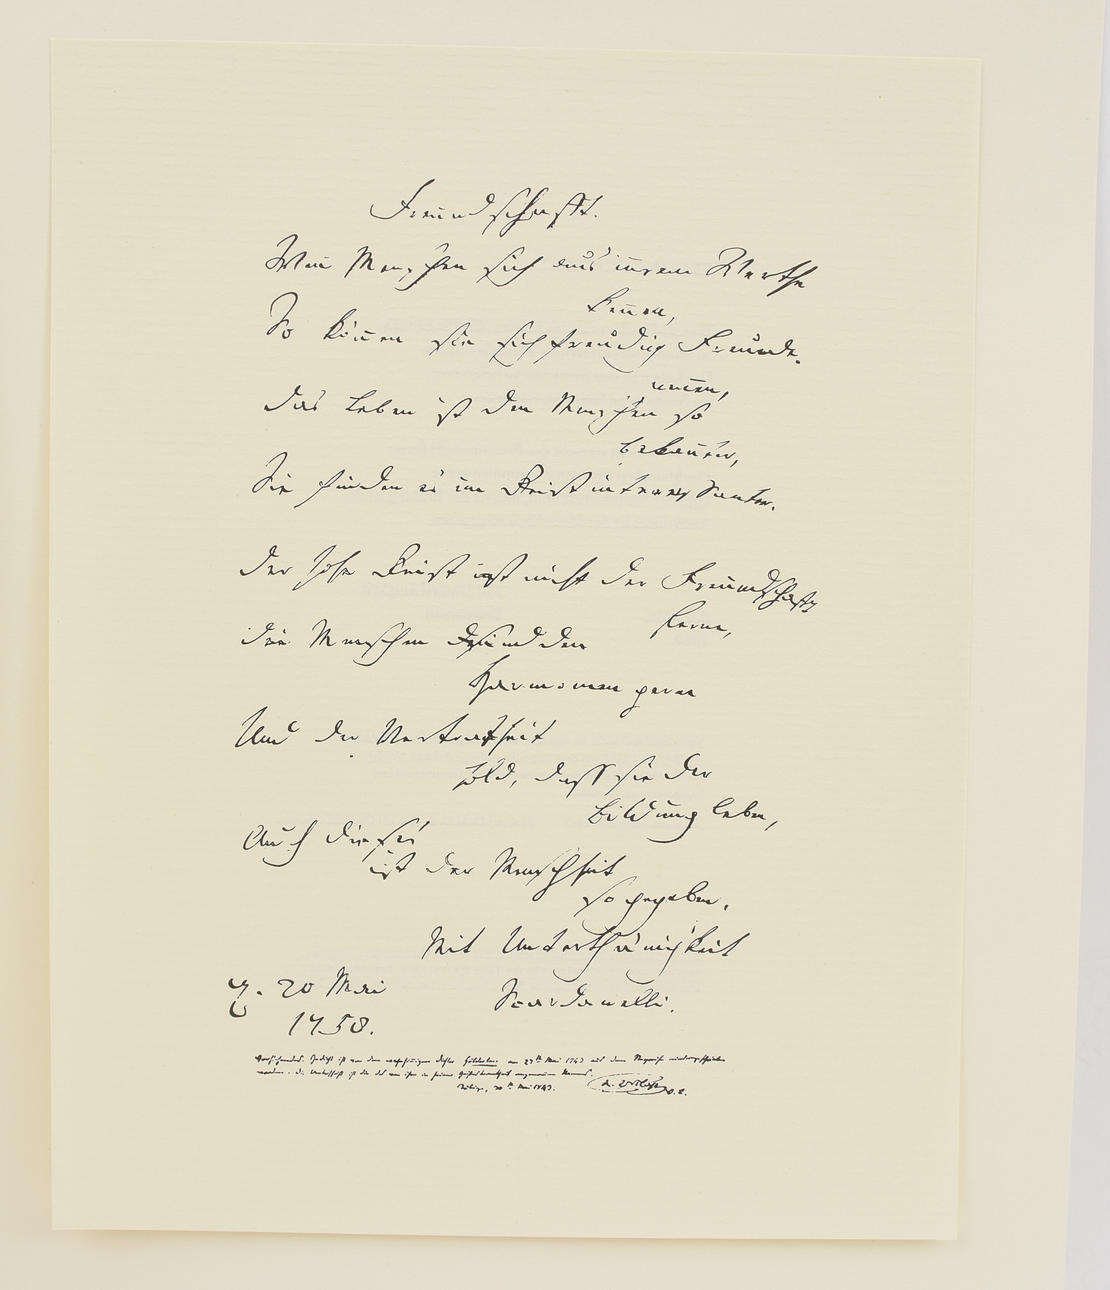 Freundschafft.
Wenn Menschen sich aus innrem Werthe
kennen,
So können sie sich freudig Freunde
nennen,
Das Leben ist den Menschen so
bekannter,
Sie finden es im Geist interressanter.
Der hohe Geist ist nicht der Freundschafft
ferne,
Die Menschen sind den
Harmonien gerne
Und der Vertrautheit
hold, dass sie der
Bildung leben,
Auch dieses
ist der Menschheit
so gegeben.
Mit Unterthänigkeit
d. 20 Mai
Scardanelli.
1758.
Gedicht ist von dem Dichter Hölderlin am Mai
die Unterschrift ist die von ihm in seiner
Mai 1843.